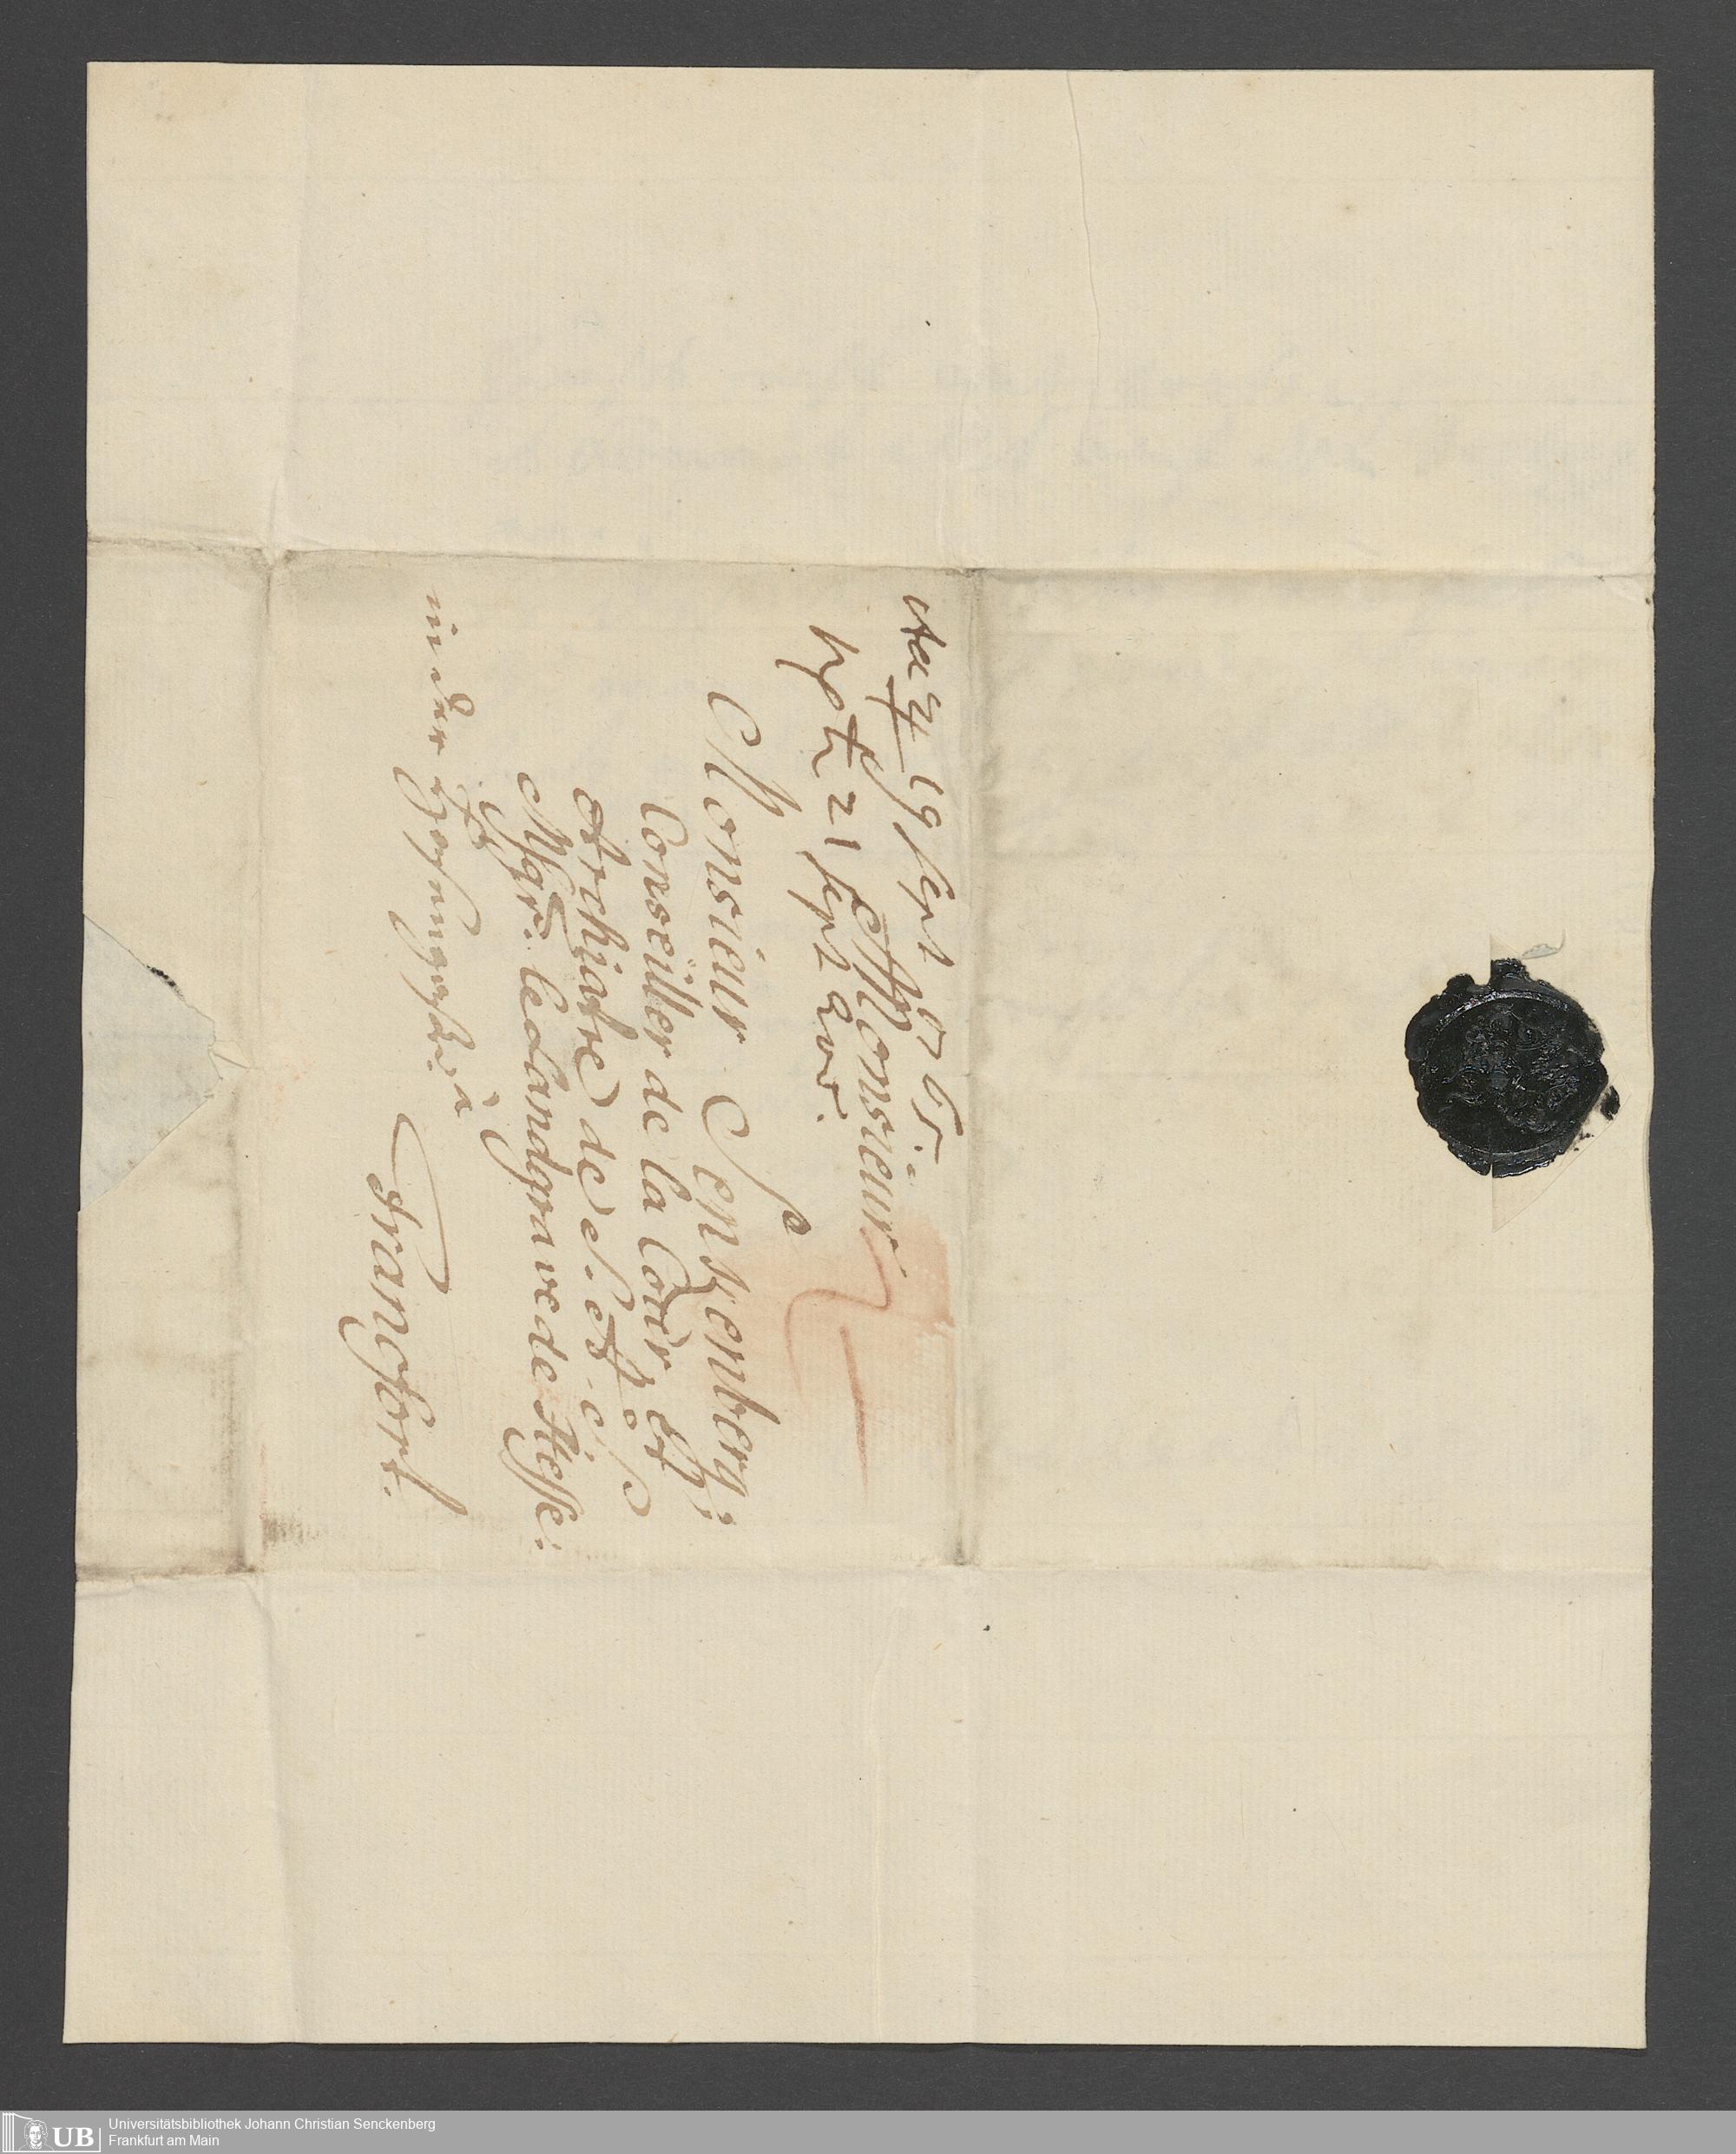 19 Sept 1765.
21 sept
à Monsieur
Monsieur Senkenberg;
Conseiller de la Cour et
Archiatre de S. A. S.
Msgr: le Landgrave de Hesse:
in der Hasengaße à
Francfort.
UB
Universitätsbibliothek Johann Christian Senckenberg
Frankfurt am Main